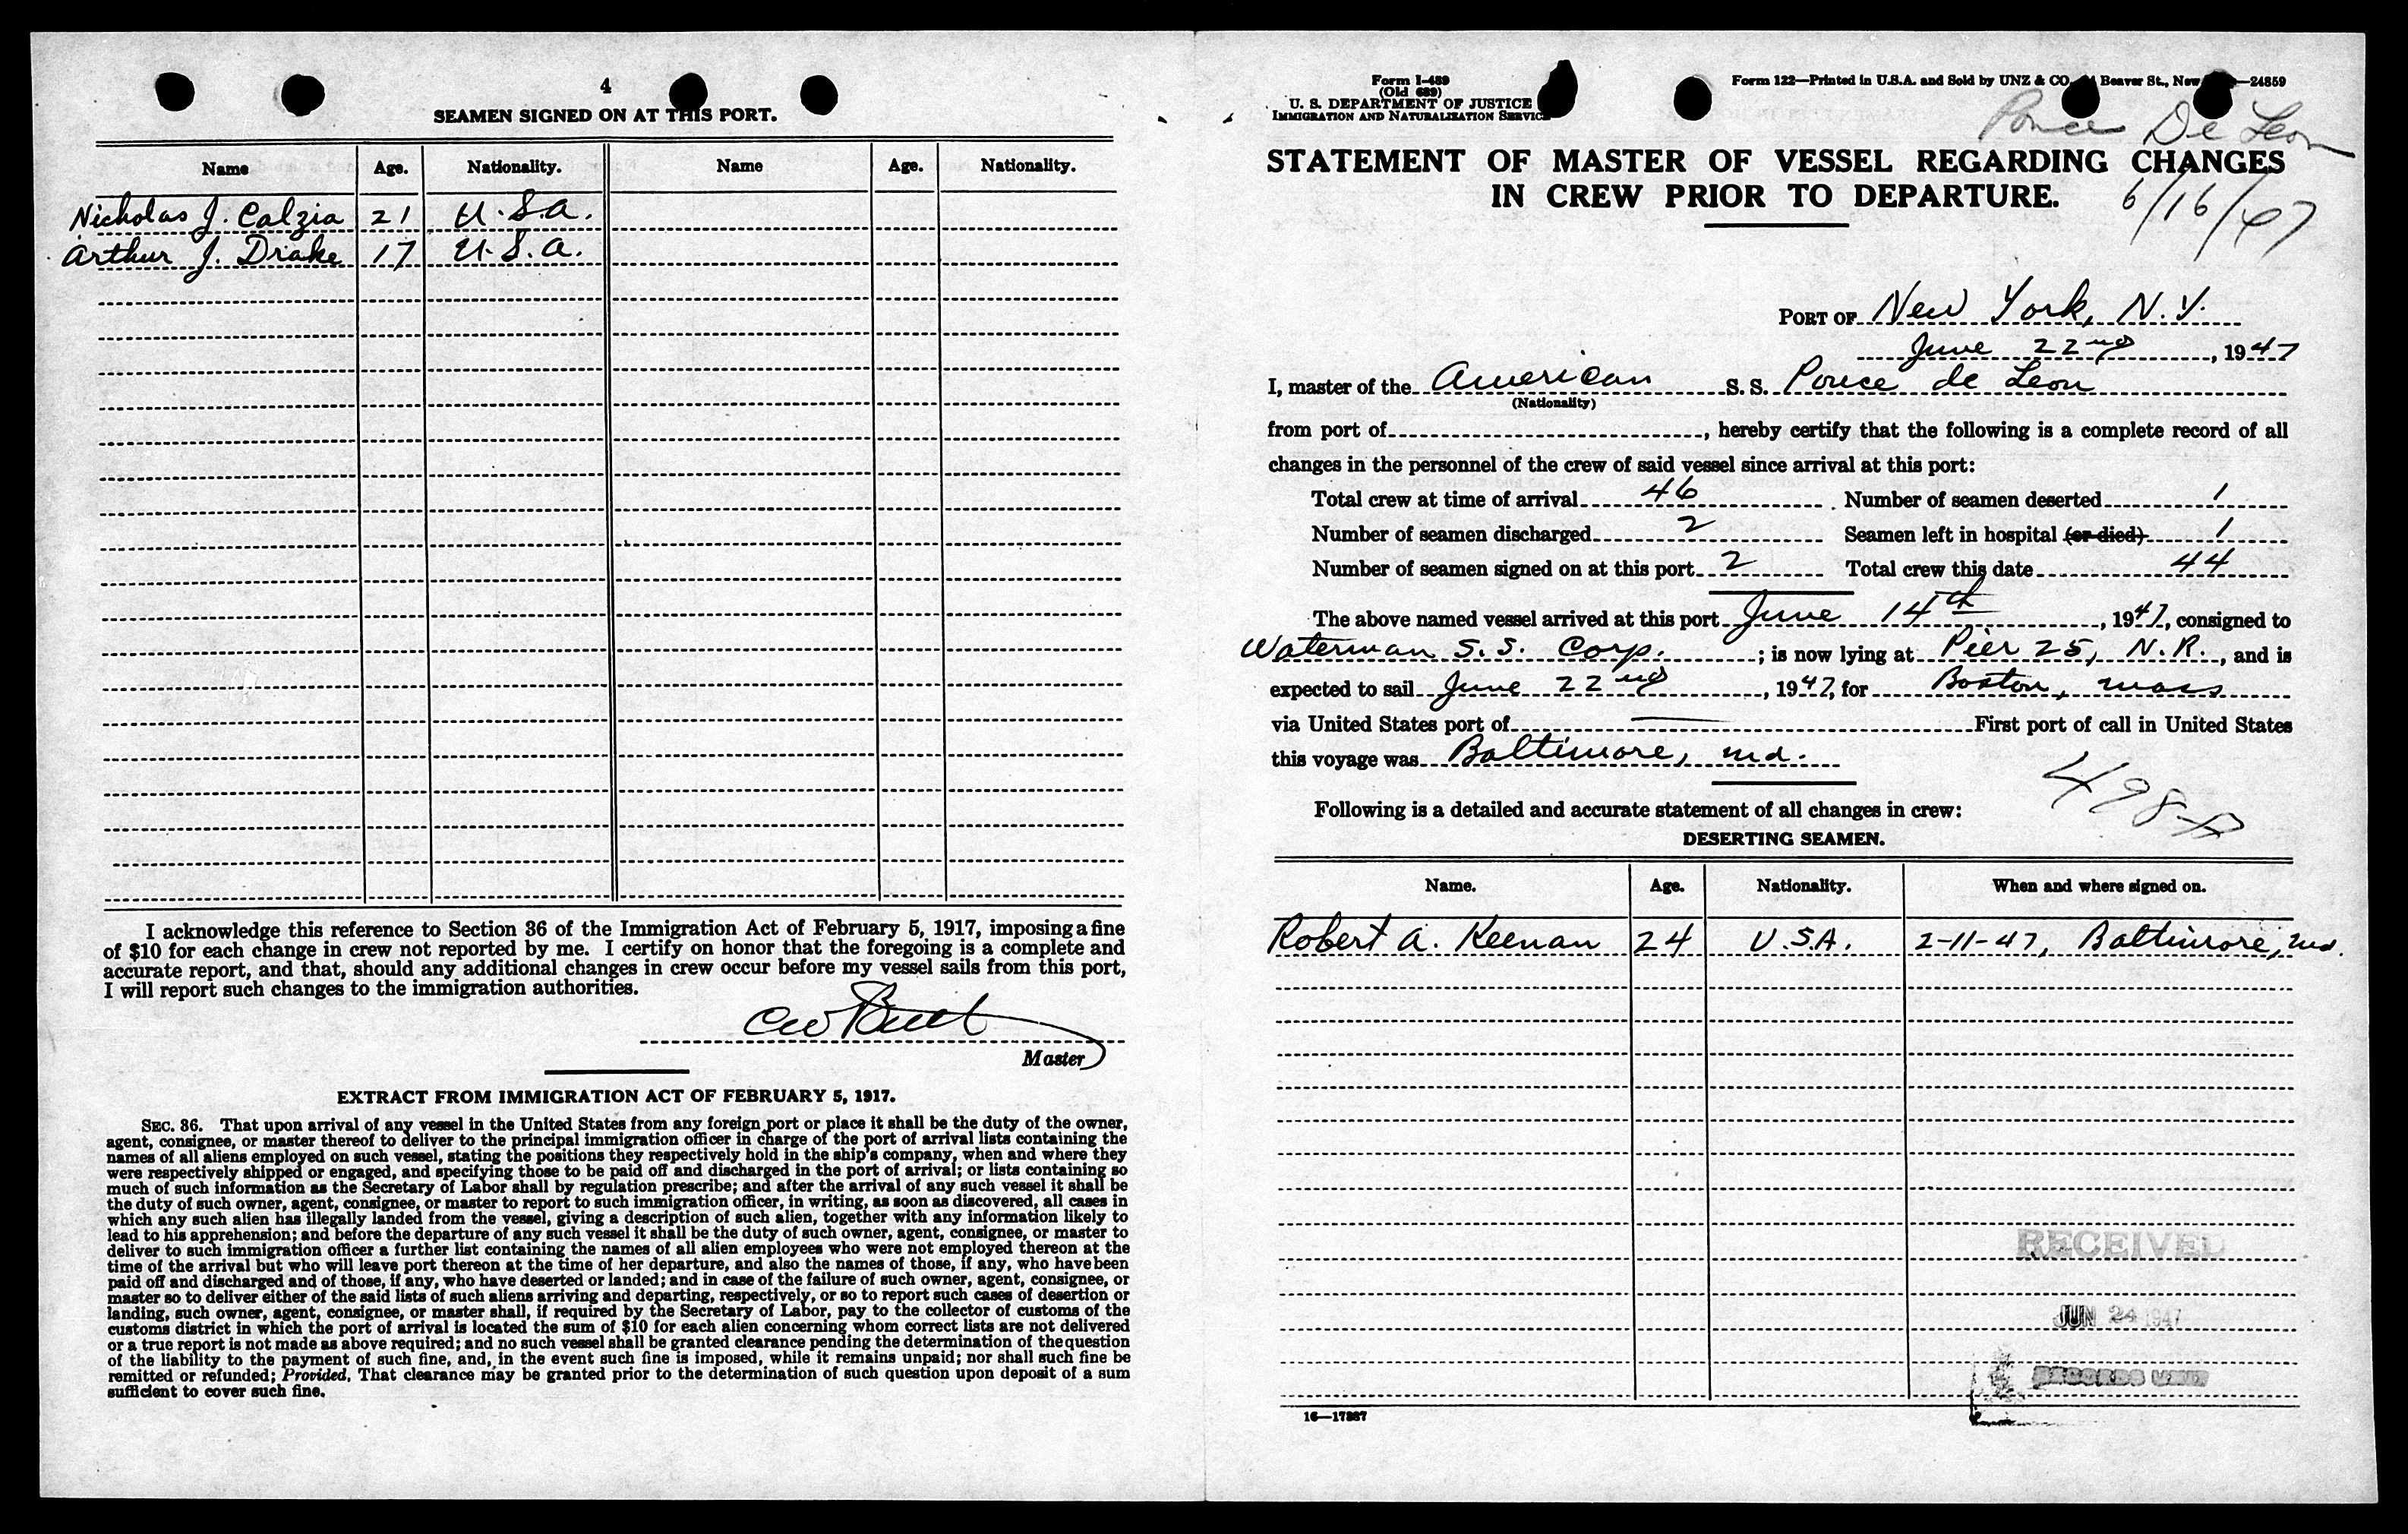 4
SEAMEN SIGNED ON AT THIS PORT.
Name Age. Nationality. Name Age. Nationality.
Nicholas J. Calzia 21 U.S.A.
Arthur J. Drake 17 U.S.A.
I acknowledge this reference to Section 36 of the Immigration Act of February 5, 1917, imposing a fine
of $10 for each change in crew not reported by me. I certify on honor that the foregoing is a complete and
accurate report, and that, should any additional changes in crew occur before my vessel sails from this port,
I will report such changes to the immigration authorities.
Master
EXTRACT FROM IMMIGRATION ACT OF FEBRUARY 5, 1917.
SEC. 36. That upon arrival of any vessel in the United States from any foreign port or place it shall be the duty of the owner,
agent, consignee, or master thereof to deliver to the principal immigration officer in charge of the port of arrival lists containing the
names of all aliens employed on such vessel, stating the positions they respectively hold in the ship's company, when and where they
were respectively shipped or engaged, and specifying those to be paid off and discharged in the port of arrival; or lists containing so
much of such information as the Secretary of Labor shall by regulation prescribe; and after the arrival of any such vessel it shall be
the duty of such owner, agent, consignee, or master to report to such immigration officer, in writing, as soon as discovered, all cases in
which any such alien has illegally landed from the vessel, giving a description of such alien, together with any information likely to
lead to his apprehension; and before the departure of any such vessel it shall be the duty of such owner, agent, consignee, or master to
deliver to such immigration officer a further list containing the names of all alien employees who were not employed thereon at the
time of the arrival but who will leave port thereon at the time of her departure, and also the names of those, if any, who have been
paid off and discharged and of those, if any, who have deserted or landed; and in case of the failure of such owner, agent, consignee, or
master so to deliver either of the said lists of such aliens arriving and departing, respectively, or so to report such cases of desertion or
landing, such owner, agent, consignee, or master shall, if required by the Secretary of Labor, pay to the collector of customs of the
customs district in which the port of arrival is located the sum of $10 for each alien concerning whom correct lists are not delivered
or a true report is not made as above required; and no such vessel shall be granted clearance pending the determination of the question
of the liability to the payment of such fine, and, in the event such fine is imposed, while it remains unpaid; nor shall such fine be
remitted or refunded; Provided, That clearance may be granted prior to the determination of such question upon deposit of a sum
sufficient to cover such fine.
Form I-489
(Old 689)
U. S. DEPARTMENT OF JUSTICE
IMMIGRATION AND NATURALIZATION SERVICE
Form 122—Printed in U.S.A. and Sold by UNZ & CO. Beaver St., New —24859
Ponce De Leon
STATEMENT OF MASTER OF VESSEL REGARDING CHANGES
IN CREW PRIOR TO DEPARTURE.
6/16/47
PORT OF New York, N.Y.
June 22nd, 1947
I, master of the American S. S. Ponce de Leon
(Nationality)
from port of , hereby certify that the following is a complete record of all
changes in the personnel of the crew of said vessel since arrival at this port:
Total crew at time of arrival 46 Number of seamen deserted 1
Number of seamen discharged 2 Seamen left in hospital (or died) 1
Number of seamen signed on at this port 2 Total crew this date 44
The above named vessel arrived at this port June 14th, 1947, consigned to
Waterman S.S. Corp. ; is now lying at Pier 25, N.R., and is
expected to sail June 22nd, 1947, for Boston, Mass
via United States port of — First port of call in United States
this voyage was Baltimore, Md.
Following is a detailed and accurate statement of all changes in crew:
DESERTING SEAMEN.
Name. Age. Nationality. When and where signed on.
Robert A. Keenan 24 U.S.A. 2-11-47, Baltimore, Md.
RECEIVED
JUN 24 1947
RECORDS UNIT
16—17887